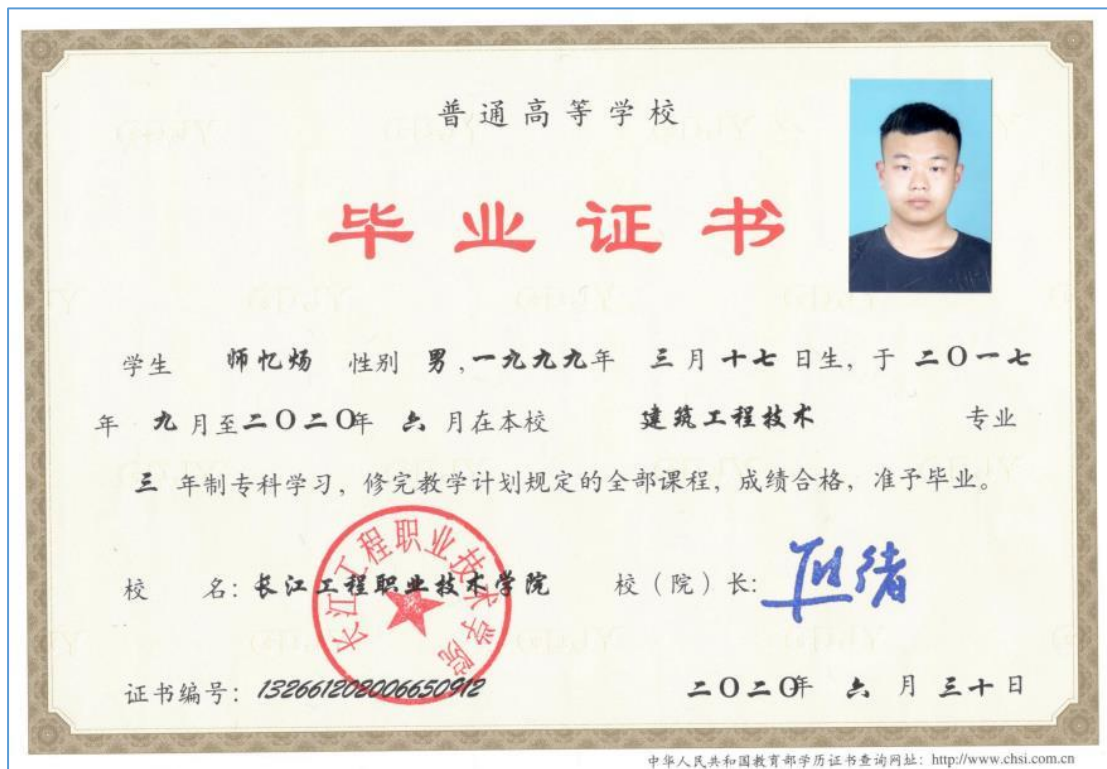 普通高等学校
毕业证书
学生 师忆炀 性别 男，一九九九年 三月十七日生，于 二〇一七
年 九月至二〇二〇年 六 月在本校 建筑工程技术 专业
三 年制专科学习，修完教学计划规定的全部课程，成绩合格，准予毕业。
长江工程职业技术学院
校 名：长江工程职业技术学院 校（院）长：
证书编号：132661202006650912 二〇二〇年 六 月 三十日
中华人民共和国教育部学历证书查询网址：http://www.chsi.com.cn